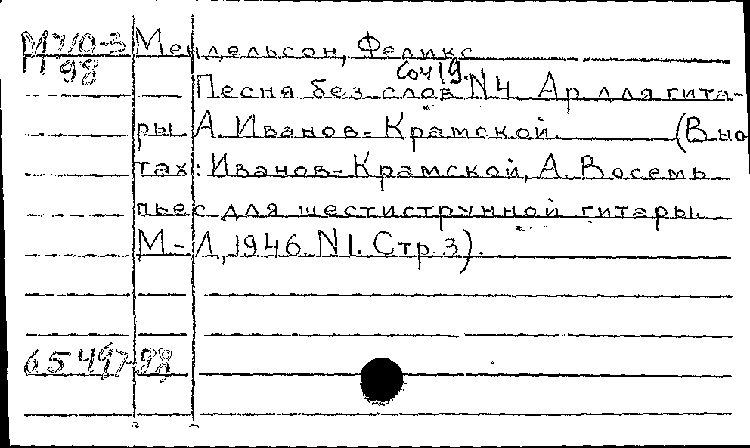 М710-3 Мендельсон, Феликс
98
Соч19.
Песня без слов N4. Ар. для гита-
ры А. Иванов-Крамской. (В но
тах: Иванов-Крамской, А. Восемь
пьес для шестиструнной гитары.
М-Л, 1946. N1. Стр. 3).
65 497-98